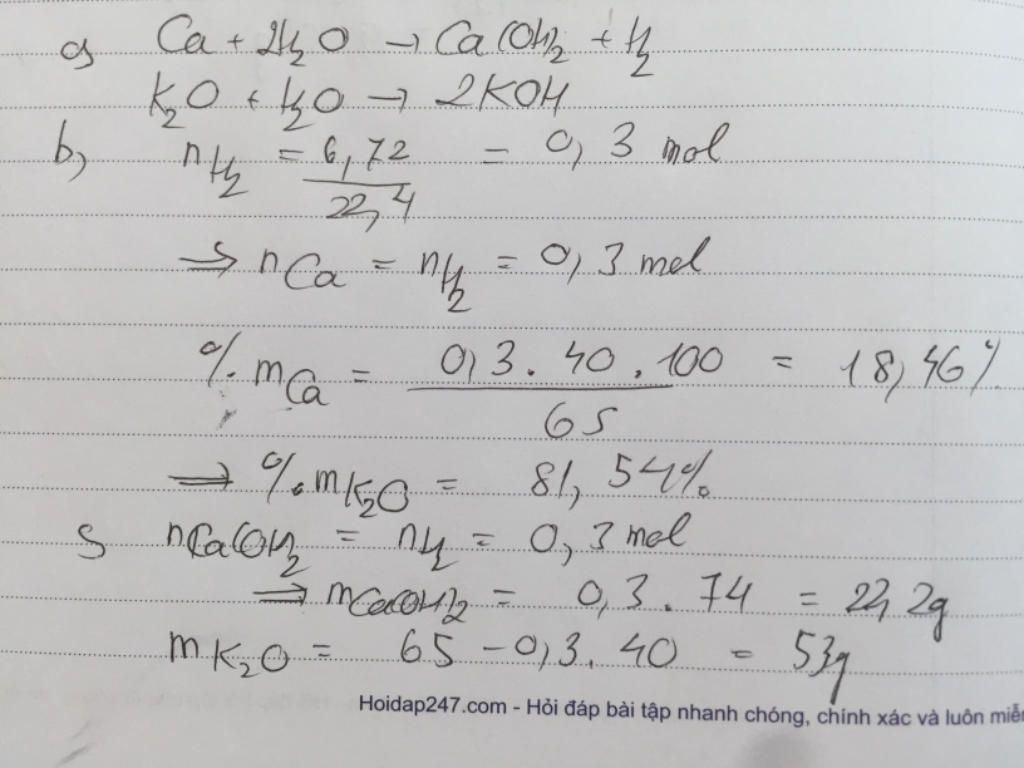 a) Ca + 2H₂O → Ca(OH)₂ + H₂
K₂O + H₂O → 2KOH
b) nH₂ = 6,72/22,4 = 0,3 mol
⇒ nCa = nH₂ = 0,3 mol
% mCa = 0,3 . 40 . 100/65 = 18,46%
⇒ % mK₂O = 81,54%
c) nCa(OH)₂ = nH₂ = 0,3 mol
⇒ mCa(OH)₂ = 0,3 . 74 = 22,2g
mK₂O = 65 - 0,3 . 40 = 53g
Hoidap247.com - Hỏi đáp bài tập nhanh chóng, chính xác và luôn miễ